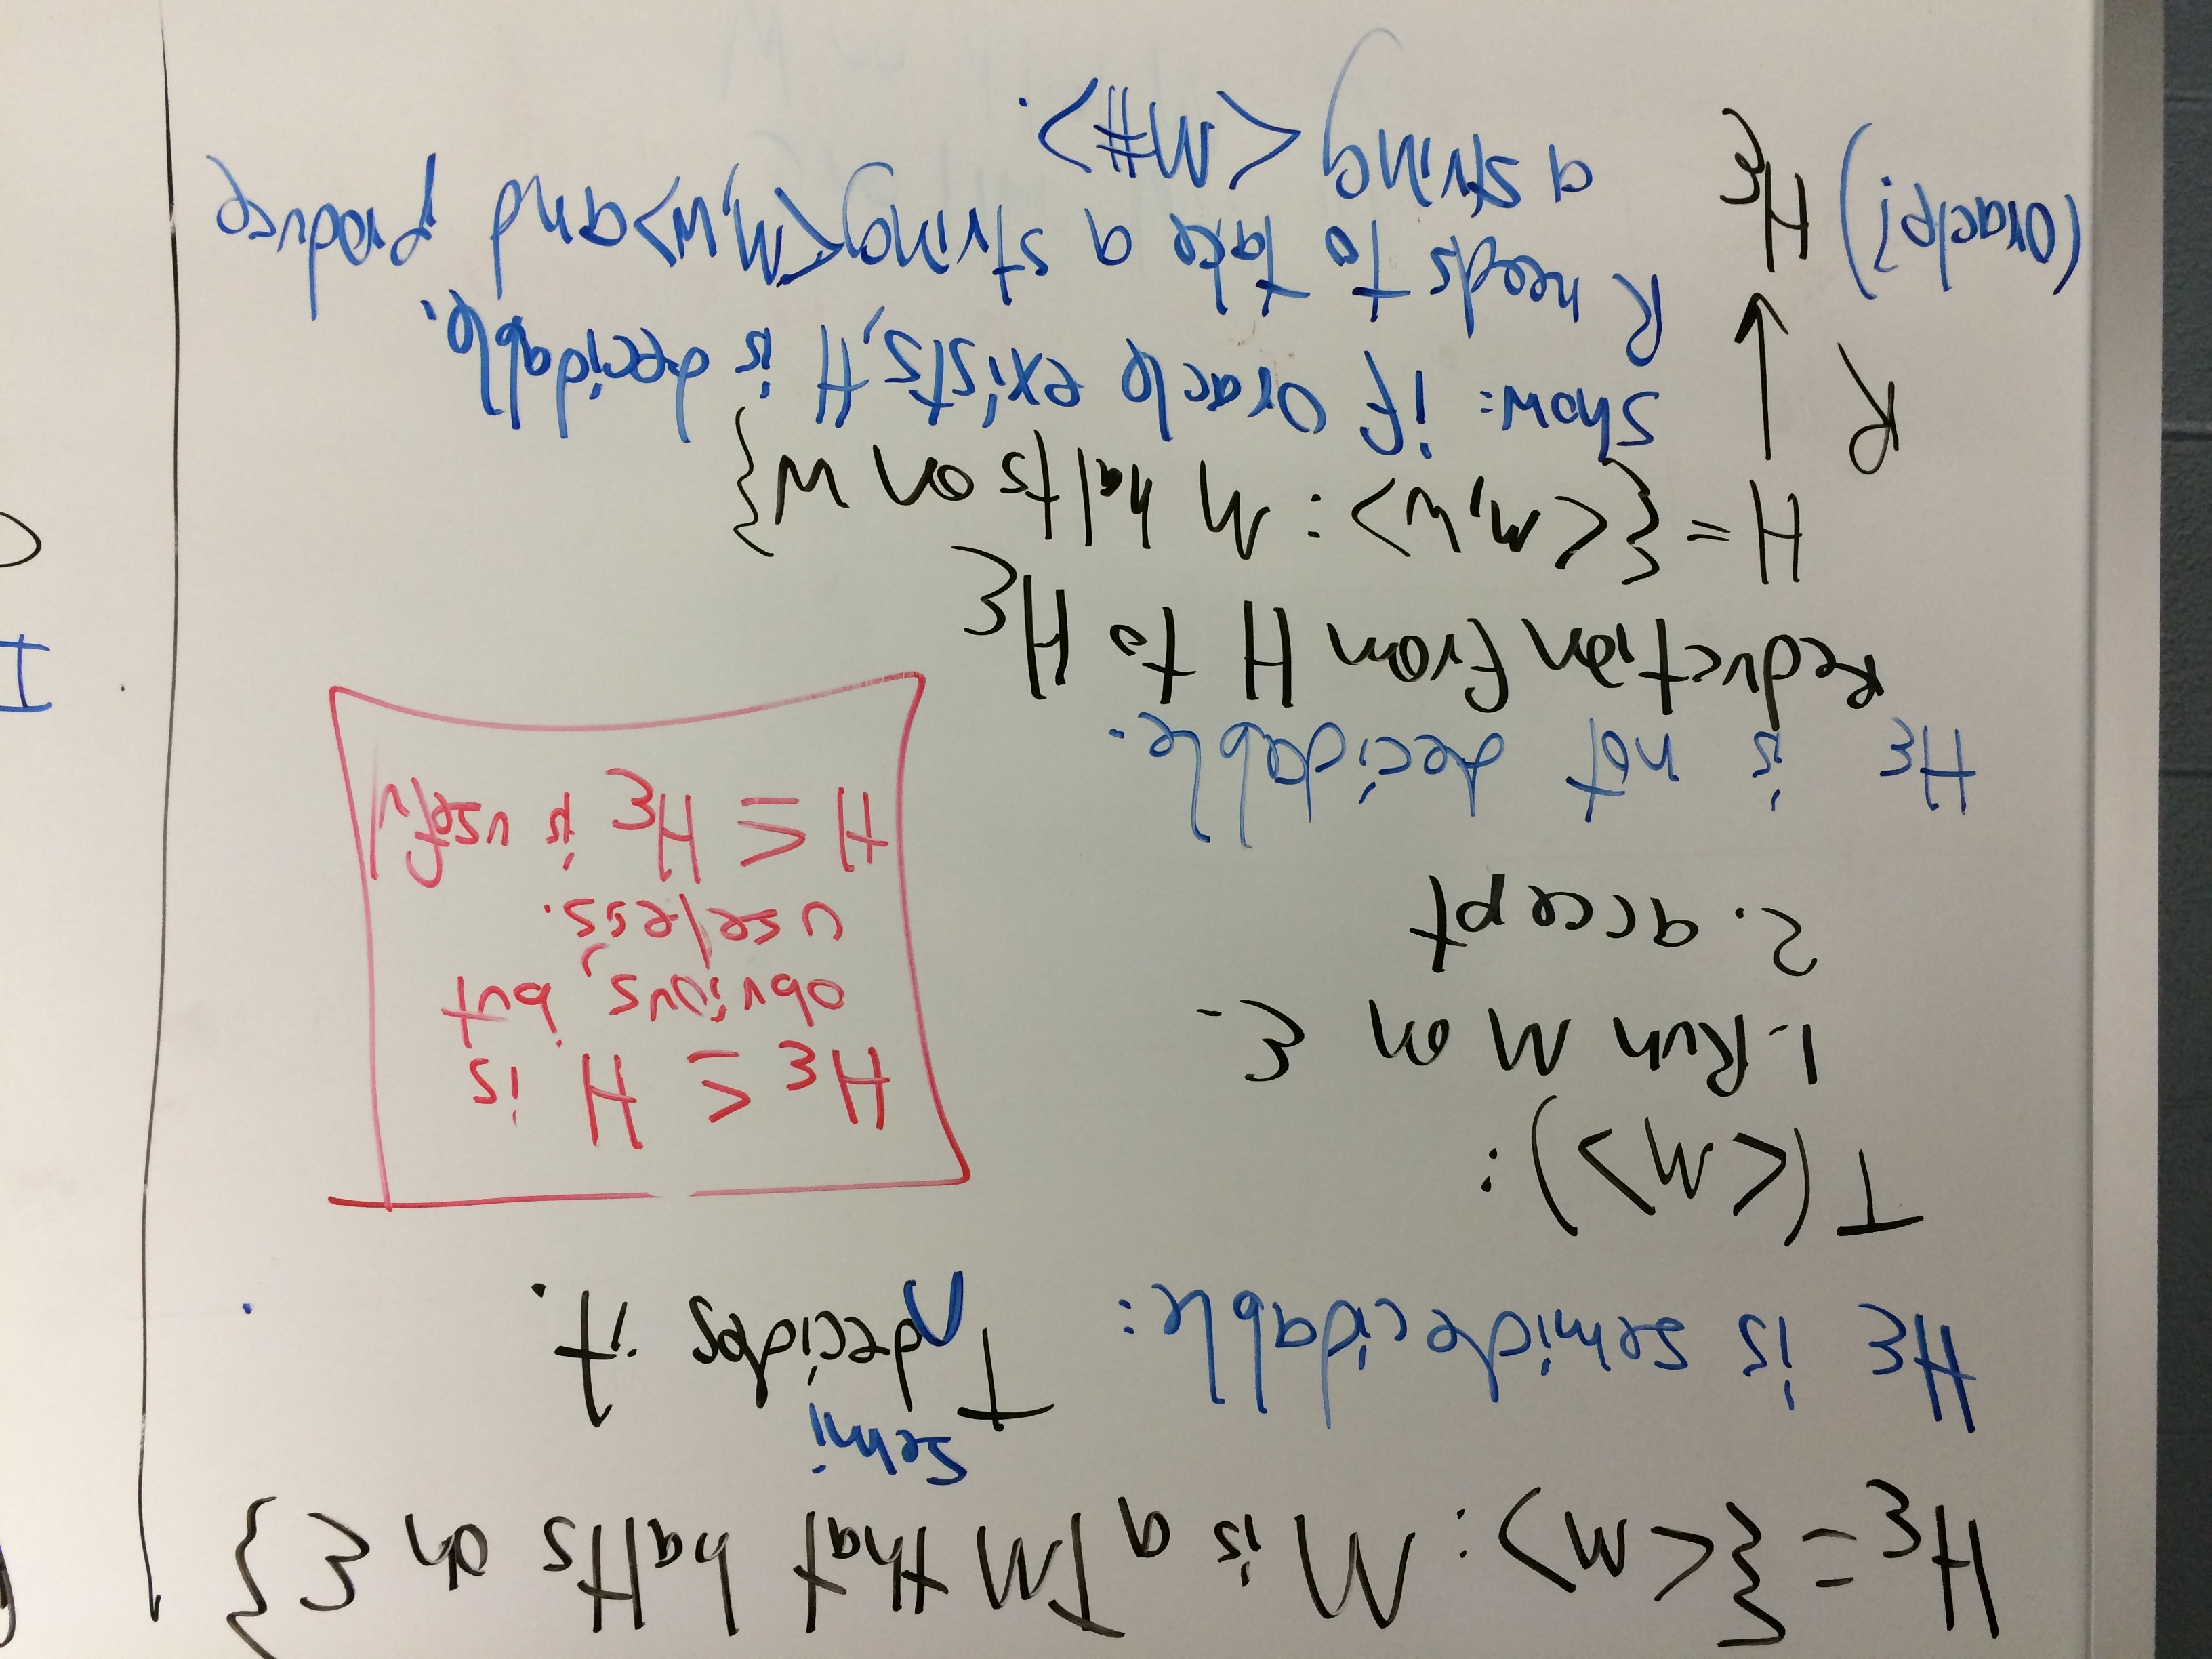 Hε = {<M> : M is a TM that halts on ε}
semi
Hε is semidecidable: T decides it.
T(<M>):
1. Run M on ε.
2. accept
Hε ≤ H is
obvious, but
useless.
H ≤ Hε is useful
Hε is not decidable.
reduction from H to Hε
H = {<M,w> : M halts on w}
R
show: if oracle exists, H is decidable.
R needs to take a string <M,w> and produce
a string <M#>.
(oracle) Hε